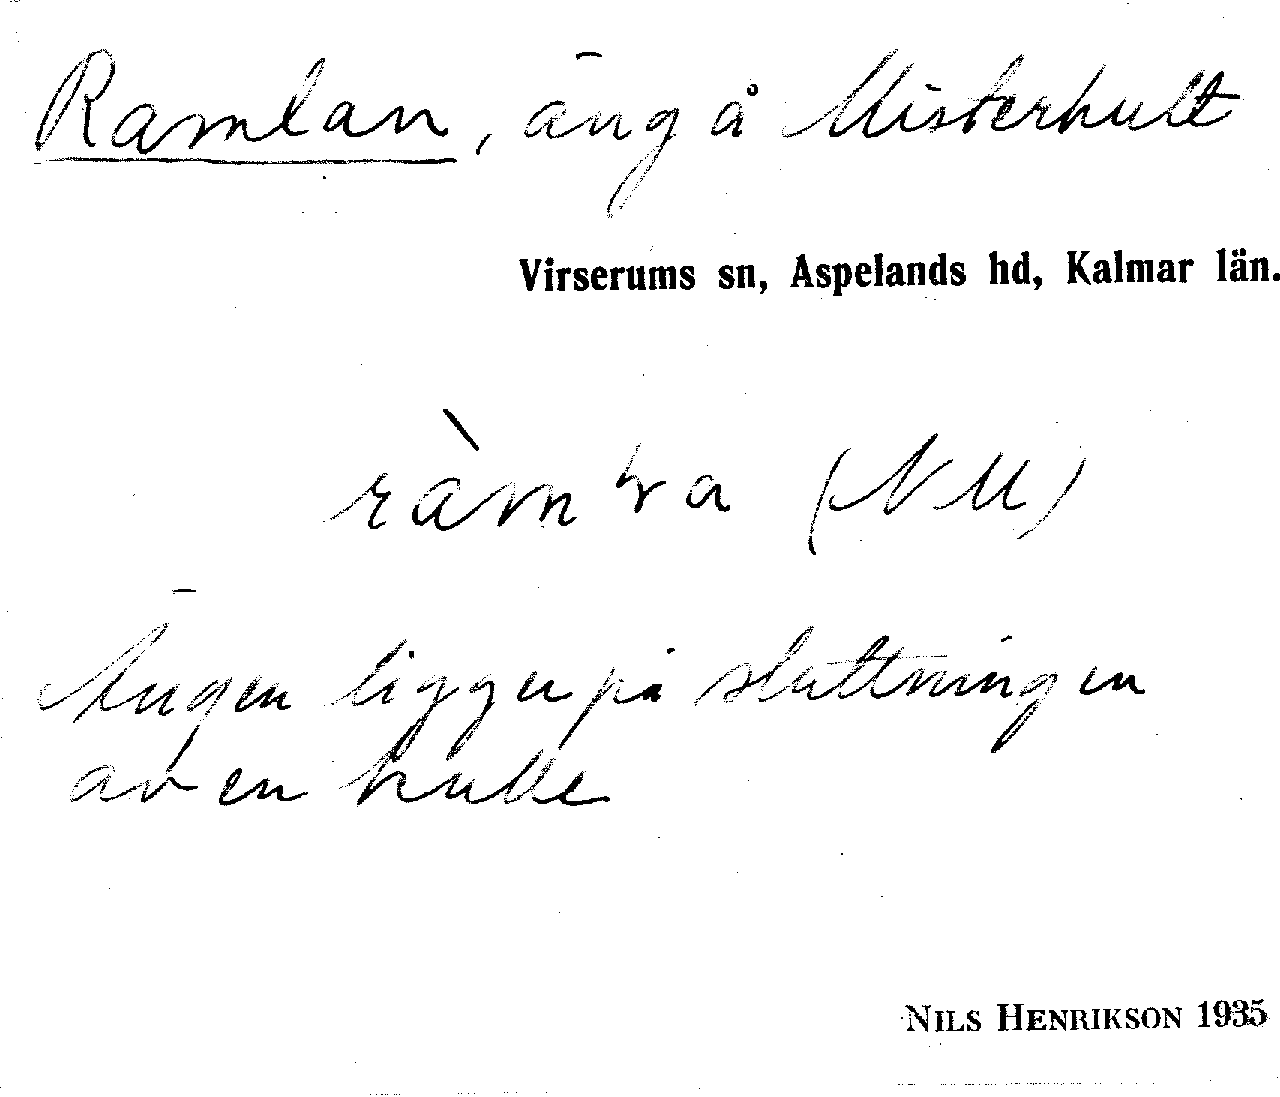 Ramlan, äng å Misterhult
Virserums sn, Aspelands hd, Kalmar län.
(NM)
Ängen ligger på sluttningen
av en kulle
NILS HENRIKSON 1935